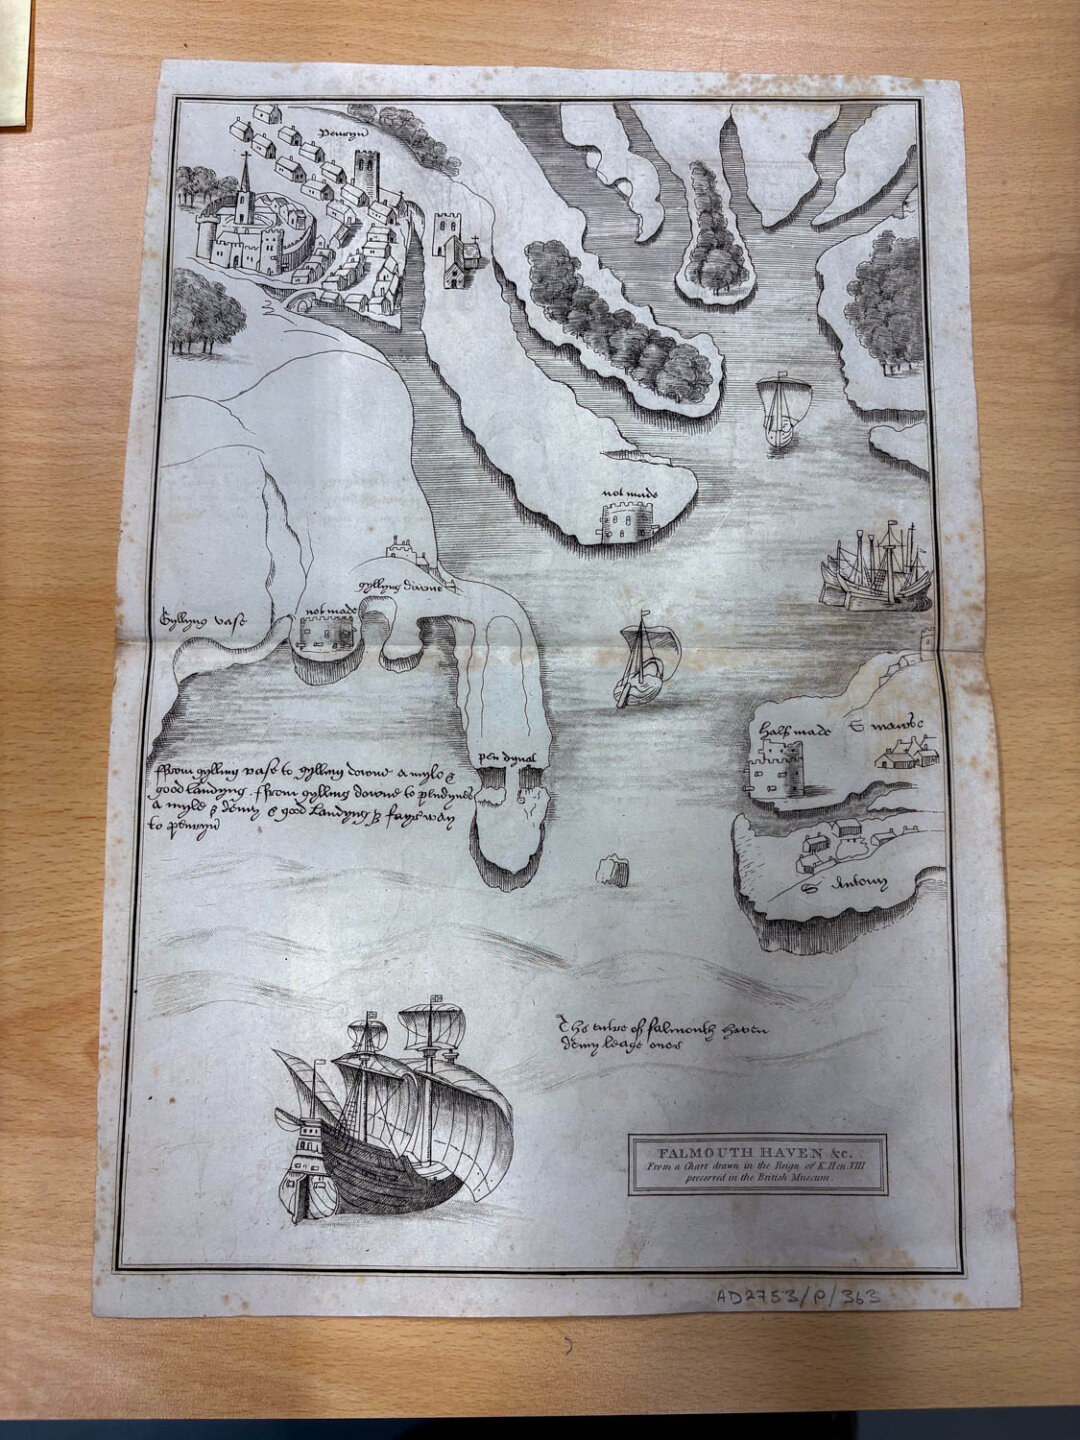 Penryn
not made
gyllyng downe
not made
Gyllyng vase
half made S mawse
pen dynal
ffrom gylling vase to gylling downe a myle &
good landyng . ffrom gylling downe to pendynes
a myle & demy & good Landyng & fayr way
to penryn
S Antony
The entre of falmouth haven
demy leage over
FALMOUTH HAVEN &c.
From a Chart drawn in the Reign of K. Hen. VIII
preserved in the British Museum.
AD2753/P/363